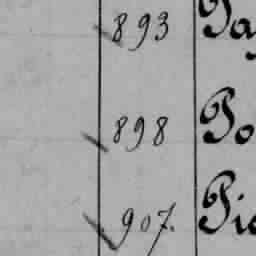 893 Pa
898 Po
907. Pie